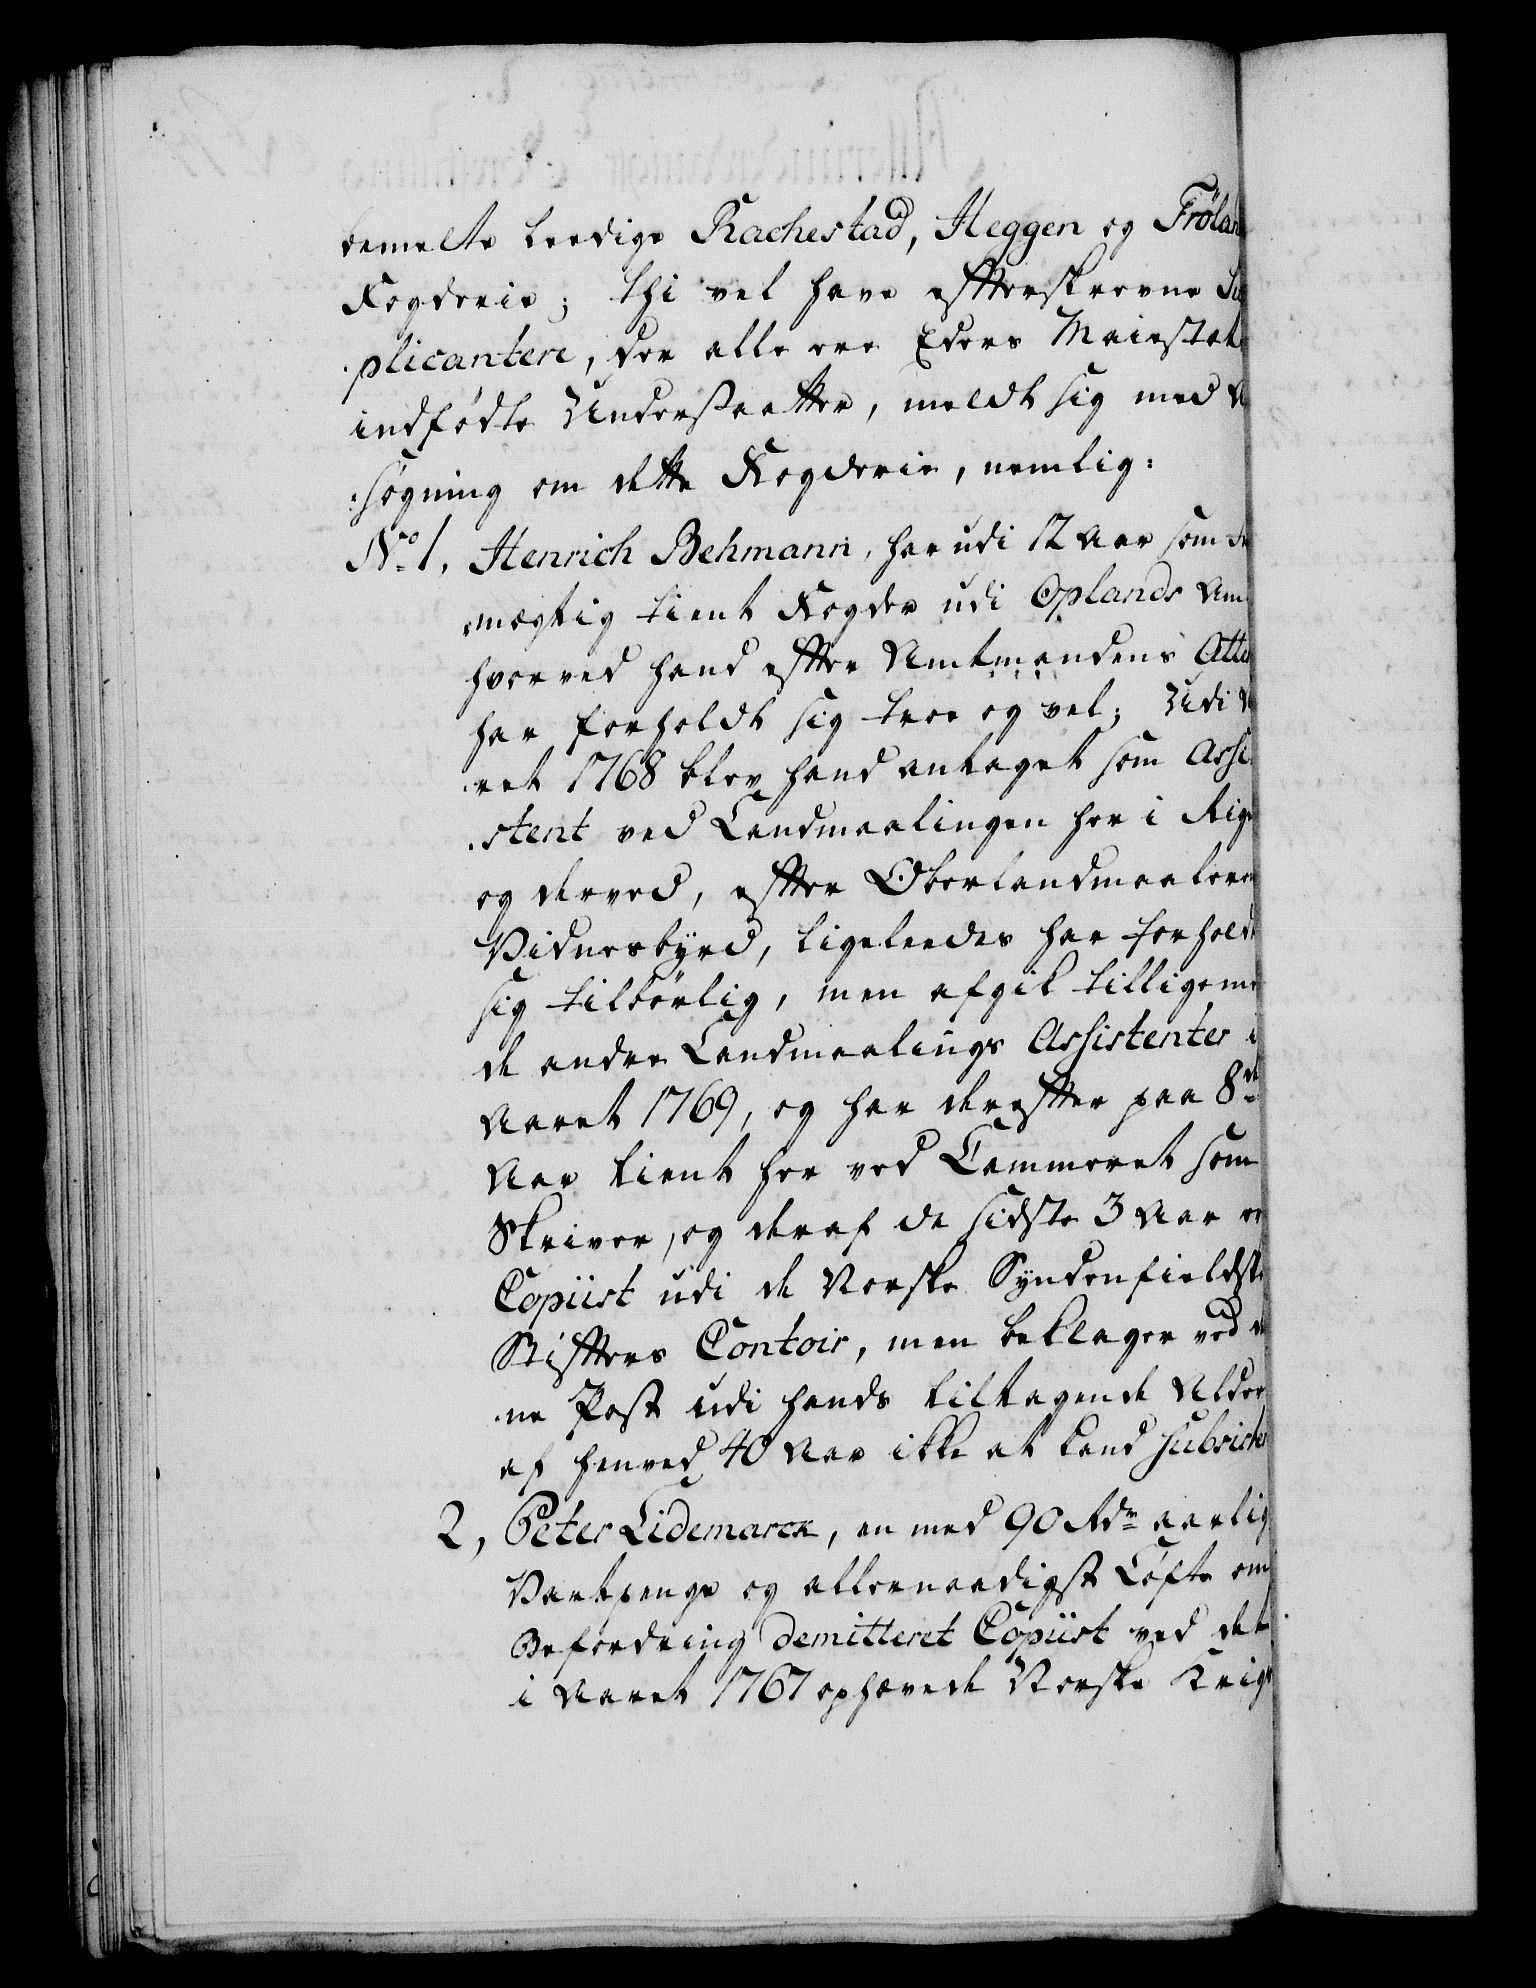 bemelte leedige Rachestad, Heggen og Frölan
Fogderie; thi vel have efterskrevne Su
plicantere, der alle ere Eders Maiestæts
indfødte Undersaatter, meldt sig med A
søgning om dette Fogderie, nemlig:
No 1, Henrich Behmann, har udi 12 Aar som Fu
mægtig tient Fogder udi Oplands Am
hvorved hand efter Amtmandens Atte
har forholdt sig troe og vel; Udi A
ret 1768 blev hand antaget som Assi
stent ved Landmaalingen her i Rige
og derved, efter Oberlandmaaleren
Vidnesbyrd, ligeleedes har forholdt
sig tilbørlig, men afgik tilligeme
de andre Landmaalings Assistenter i
Aaret 1769, og har derefter paa 8de
Aar tient her ved Cammeret som
Skriver, og deraf de sidste 3 Aar er
Copiist udi de Norske Syndenfieldske
Stifters Contoir, men beklager ved de
ne Post udi hands tiltagende Alder
af henved 40 Aar ikke at kand subsiste
2, Peter Lidemarck, en med 90 Rdr aarlig
Vartpenge og allernaadigst Løfte om
Befordring demitteret Copiist ved det
i Aaret 1767 ophævede Norske Krigs